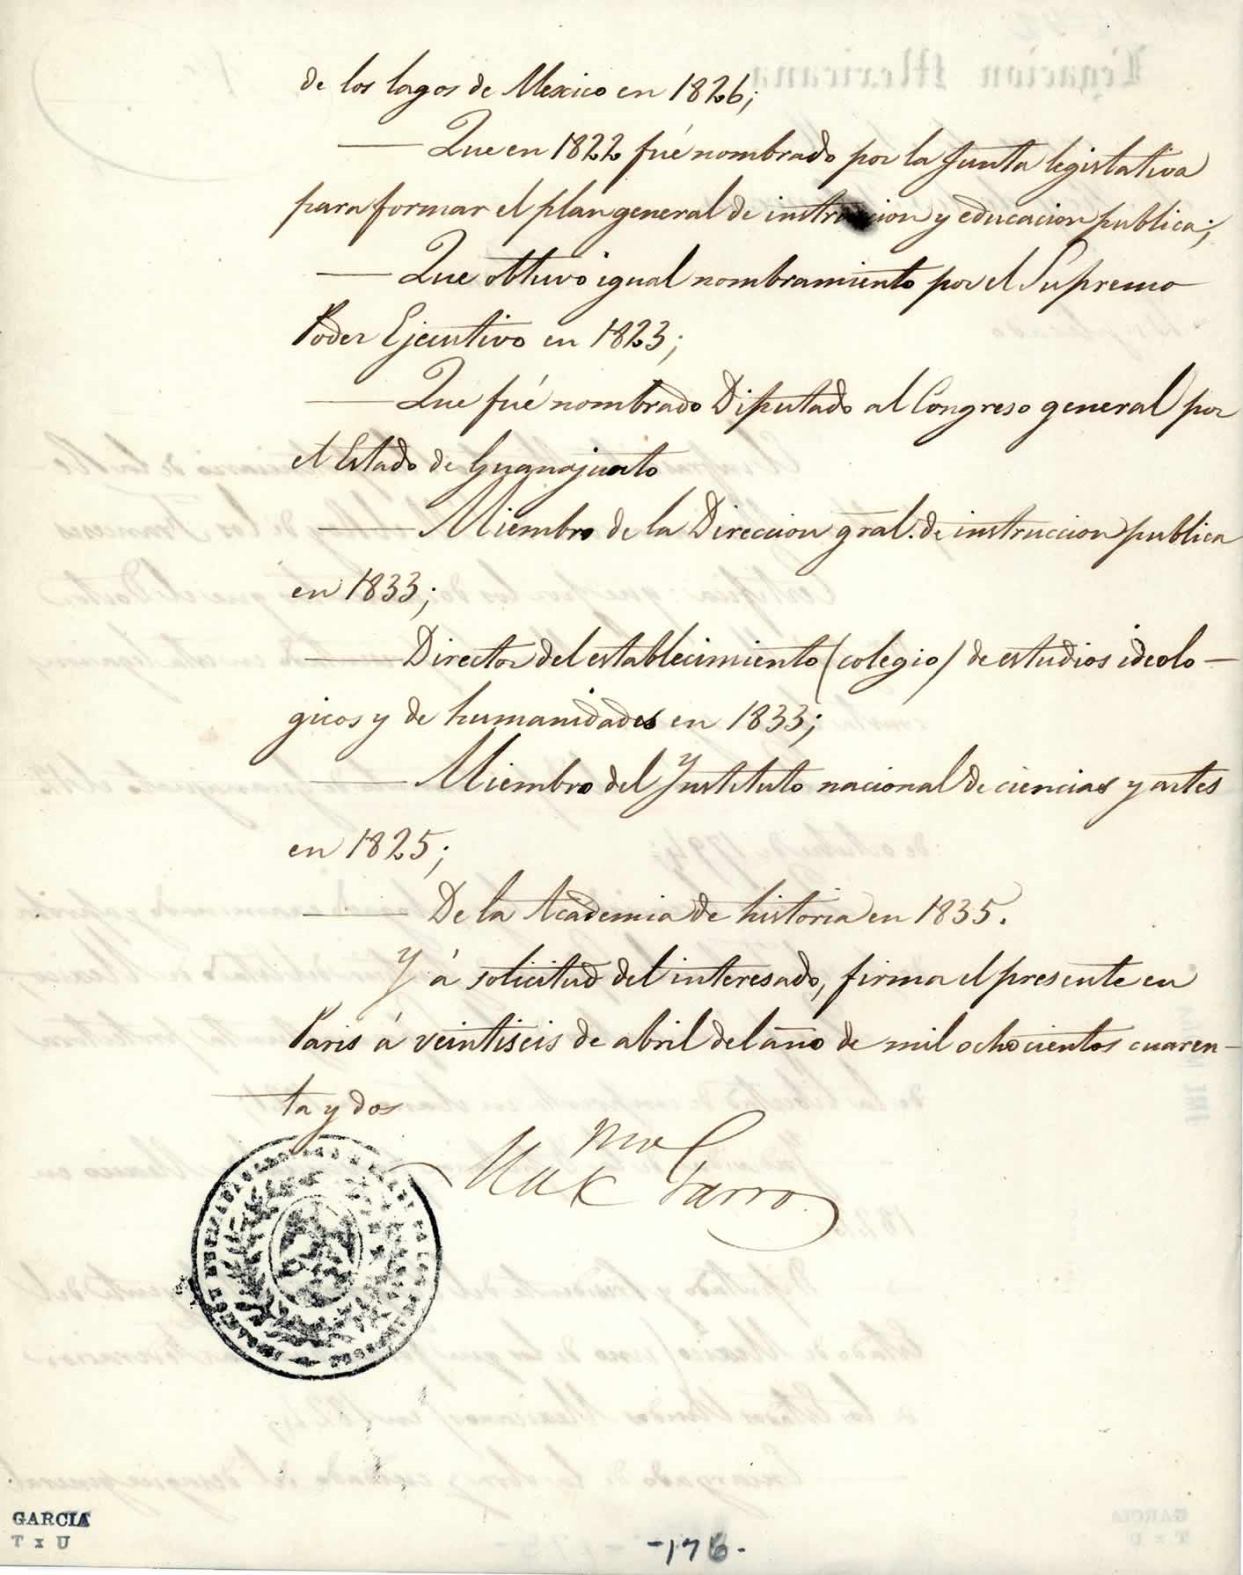 de los lagos de Mexico en 1826;
— Que en 1822 fué nombrado por la Junta legislativa
para formar el plan general de instruccion y educacion publica;
— Que obtuvo igual nombramiento por el Supremo
Poder Ejecutivo en 1823;
— Que fué nombrado Diputado al Congreso general por
el Estado de Guanajuato
— Miembro de la Direccion gral. de instruccion publica
en 1833;
— Director del establecimiento (colegio) de estudios ideolo-
gicos y de humanidades en 1833;
— Miembro del Ynstituto nacional de ciencias y artes
en 1825;
— De la Academia de historia en 1835.
Y á solicitud del interesado, firma el presente en
Paris á veintiseis de abril del año de mil ochocientos cuaren-
ta y dos
Max mo Garro
GARCIA
T x U
-176-